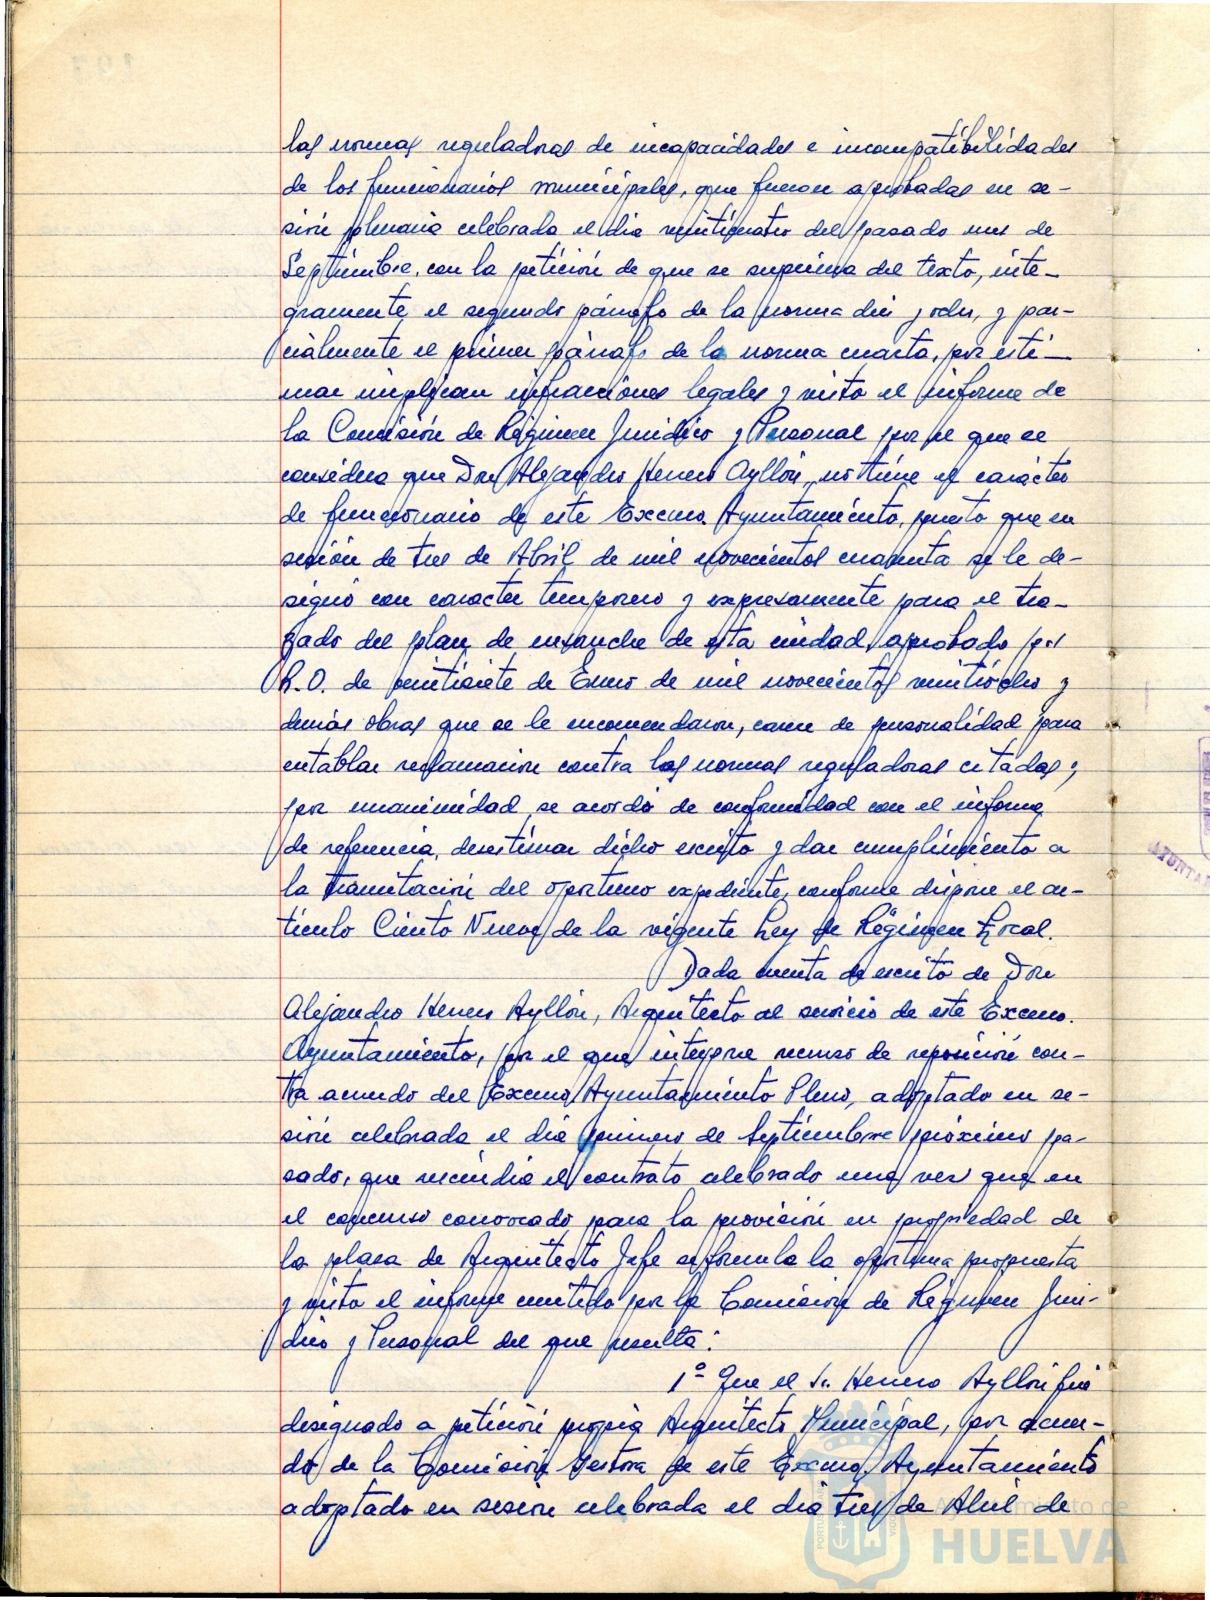 las normas reguladoras de incapacidades e incompatibilidades
de los funcionarios municipales, que fueron aprobadas en se-
sión plenaria celebrada el dia veinticuatro del pasado mes de
Septiembre, con la petición de que se suprima del texto, inte-
gramente el segundo párrafo de la norma diez y ocho, y par-
cialmente el primer párrafo de la norma cuarta, por esti-
mar implican infracciones legales y visto el informe de
la Comisión de Régimen Juridico y Personal por el que se
considera que Don Alejandro Herrero Ayllón, no tiene el carácter
de funcionario de este Excmo. Ayuntamiento, puesto que en
sesión de tres de Abril de mil novecientos cuarenta se le de-
signó con caracter temporero y expresamente para el tra-
zado del plan de ensanche de esta ciudad, aprobado por
R.O. de veintisiete de Enero de mil novecientos veintiocho y
demás obras que se le encomendaron, carece de personalidad para
entablar reclamación contra las normas reguladoras citadas;
por unanimidad se acordó de conformidad con el informe
de referencia, desestimar dicho escrito y dar cumplimiento a
la tramitación del oportuno expediente, conforme dispone el ar-
tículo Ciento Nueve de la vigente Ley de Régimen Local.
Dada cuenta de escrito de Don
Alejandro Herrero Ayllón, Arquitecto al servicio de este Excmo.
Ayuntamiento, por el que interpone recurso de reposición con-
tra acuerdo del Excmo. Ayuntamiento Pleno, adoptado en se-
sión celebrada el dia primero de Septiembre próximo pa-
sado, que rescindia el contrato celebrado una vez que en
el concurso convocado para la provisión en propiedad de
la plaza de Arquitecto Jefe se formula la oportuna propuesta
y visto el informe emitido por la Comisión de Régimen Juri-
dico y Personal del que resulta:
1º Que el Sr. Herrero Ayllón fué
designado a petición propia Arquitecto Municipal, por acuer-
do de la Comisión Gestora de este Excmo. Ayuntamiento
adoptado en sesión celebrada el dia tres de Abril de
Ayuntamiento de
HUELVA